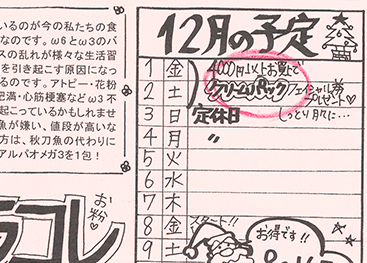 いるのが今の私たちの食
なのです。ω6とω3のバ
スの乱れが様々な生活習
を引き起こす原因になっ
るのです。アトピー・花粉
肥満・心筋梗塞などω3不
起こっているかもしれませ
魚が嫌い、値段が高いな
方は、秋刀魚の代わりに
アルパオメガ3を1包!
お粉
ラコレ
12月の予定
1 金 4000円以上お買上で
2 土 クリームパック フェイシャル券
プレゼント♡
3 日 定休日 しっとり肌に…
4 月 〃
5 火
6 水
7 木
8 金 スタート!!
9 土 お得です!!